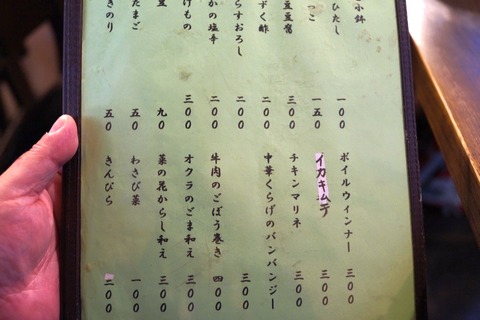 小鉢
ひたし 一〇〇
っこ 一五〇
豆豆腐 三〇〇
ずく酢 二〇〇
らすおろし 二〇〇
かの塩辛 二〇〇
けもの 三〇〇
豆 九〇
たまご 五〇
きのり 五〇
ボイルウィンナー 三〇〇
イカキムチ 三〇〇
チキンマリネ 三〇〇
中華くらげのバンバンジー 三〇〇
牛肉のごぼう巻き 四〇〇
オクラのごま和え 三〇〇
菜の花からし和え 三〇〇
わさび菜 一〇〇
きんぴら 二〇〇